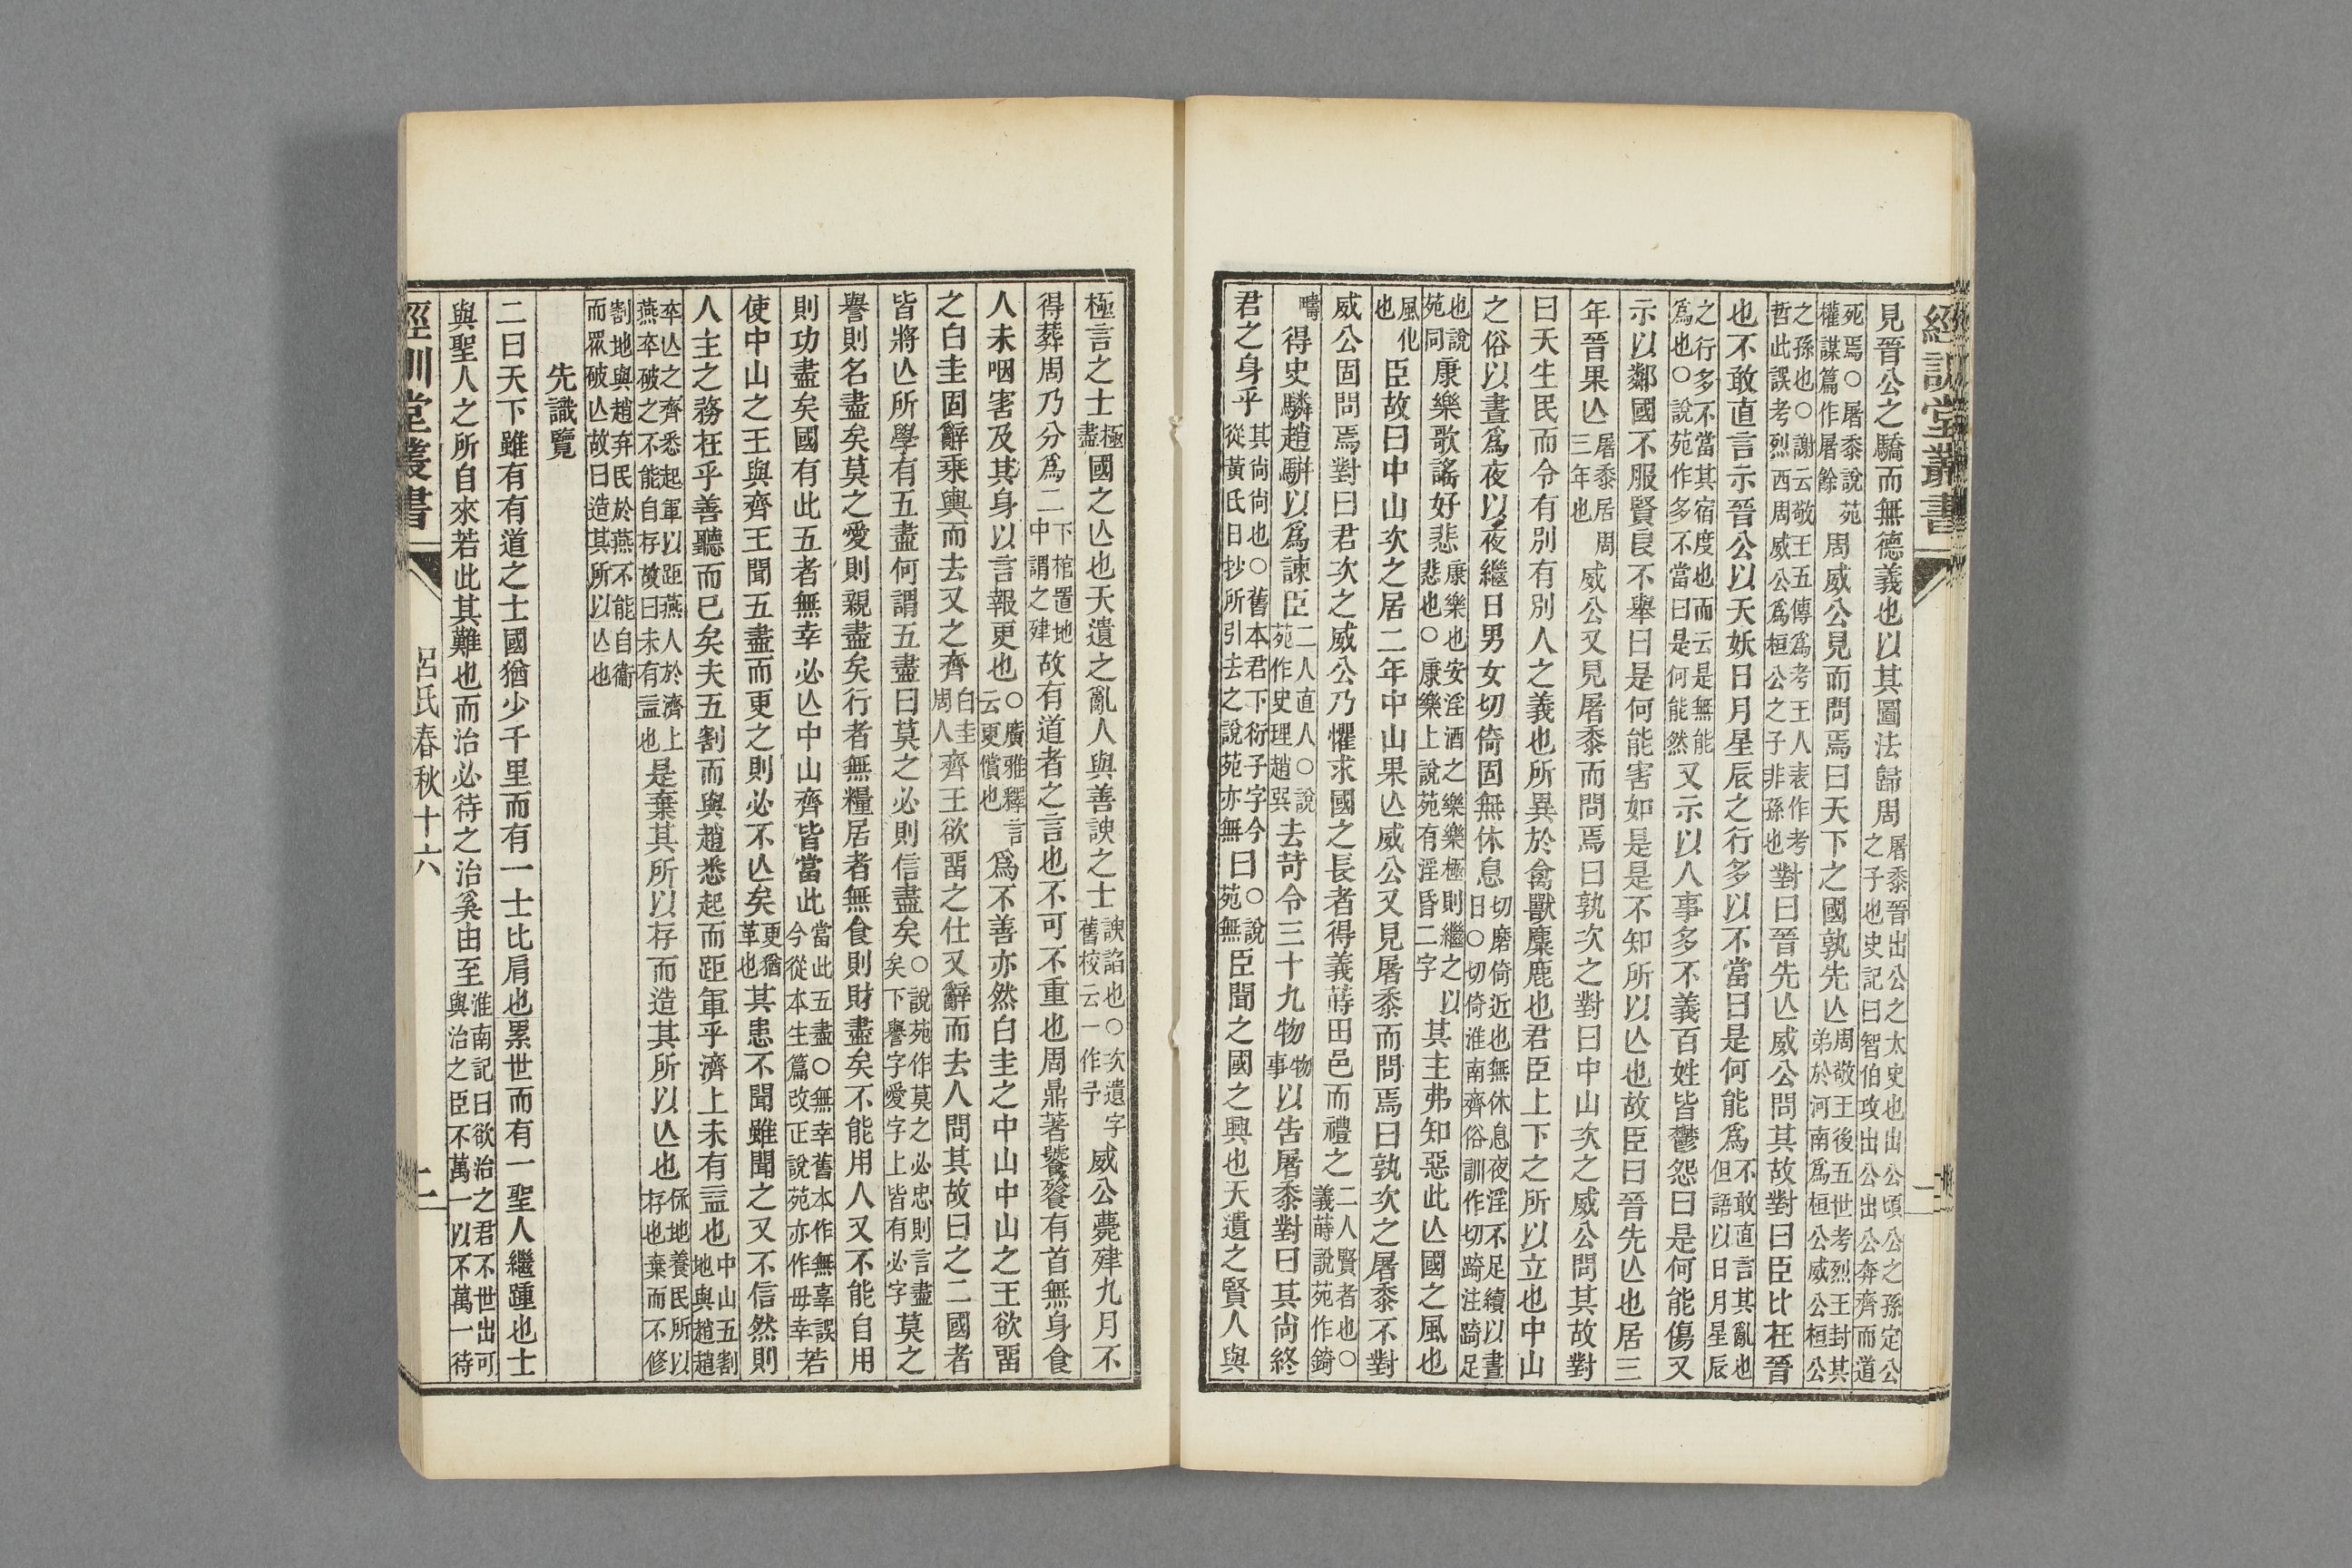 經訓堂叢書
見晉公之驕而無德義也以其圖法歸周屠黍晉出公之太史也出公頃公之孫定公之子也史記曰智伯攻出公出公奔齊而道
死焉○屠黍說苑權謀篇作屠餘周威公見而問焉曰天下之國孰先亾周敬王後五世考烈王封其弟於河南爲桓公威公桓公
之孫也○謝云敬王五傳爲考王人表作考哲此誤考烈西周威公爲桓公之子非孫也對曰晉先亾威公問其故對曰臣比在晉
也不敢直言示晉公以天妖日月星辰之行多以不當曰是何能爲不敢直言其亂也但語以日月星辰
之行多不當其宿度也而云是無能爲也○說苑作多不當曰是何能然又示以人事多不義百姓皆鬱怨曰是何能傷又
示以鄰國不服賢良不舉曰是何能害如是是不知所以亾也故臣曰晉先亾也居三
年晉果亾屠黍居周三年也威公又見屠黍而問焉曰孰次之對曰中山次之威公問其故對
曰天生民而令有別有別人之義也所異於禽獸麋鹿也君臣上下之所以立也中山
之俗以晝爲夜以夜繼日男女切倚固無休息切磨倚近也無休息夜淫不足續以晝日○切倚淮南齊俗訓作切踦注踦足
也說苑同康樂歌謠好悲康樂也安淫酒之樂樂極則繼之以悲也○康樂上說苑有淫昏二字其主弗知惡此亾國之風也
風化也臣故曰中山次之居二年中山果亾威公又見屠黍而問焉曰孰次之屠黍不對
威公固問焉對曰君次之威公乃懼求國之長者得義蒔田邑而禮之二人賢者也○義蒔說苑作錡
疇得史驎趙駢以爲諫臣二人直人○說苑作史理趙巽去苛令三十九物物事以告屠黍對曰其尚終
君之身乎其尚尚也○舊本君下衍子字今從黃氏日抄所引去之說苑亦無曰○說苑無臣聞之國之興也天遺之賢人與
極言之士極盡國之亾也天遺之亂人與善諛之士諛諂也○次遺字舊校云一作予威公薨肂九月不
得葬周乃分爲二下棺置地中謂之肂故有道者之言也不可不重也周鼎著饕餮有首無身食
人未咽害及其身以言報更也○廣雅釋言云更償也爲不善亦然白圭之中山中山之王欲畱
之白圭固辭乘輿而去又之齊白圭周人齊王欲畱之仕又辭而去人問其故曰之二國者
皆將亾所學有五盡何謂五盡曰莫之必則信盡矣○說苑作莫之必忠則言盡矣下譽字愛字上皆有必字莫之
譽則名盡矣莫之愛則親盡矣行者無糧居者無食則財盡矣不能用人又不能自用
則功盡矣國有此五者無幸必亾中山齊皆當此當此五盡○無幸舊本作無辜誤今從本生篇改正說苑亦作毋幸若
使中山之王與齊王聞五盡而更之則必不亾矣更猶革也其患不聞雖聞之又不信然則
人主之務在乎善聽而已矣夫五割而與趙悉起而距軍乎濟上未有益也中山五割地與趙趙
卒亾之齊悉起軍以距燕人於濟上燕卒破之不能自存故曰未有益也是棄其所以存而造其所以亾也保地養民所以存也棄而不修
割地與趙弃民於燕不能自衞而眾破亾故曰造其所以亾也
先識覽
二曰天下雖有有道之士國猶少千里而有一士比肩也累世而有一聖人繼踵也士
與聖人之所自來若此其難也而治必待之治奚由至淮南記曰欲治之君不世出可與治之臣不萬一以不萬一待
經訓堂叢書
呂氏春秋十六
二